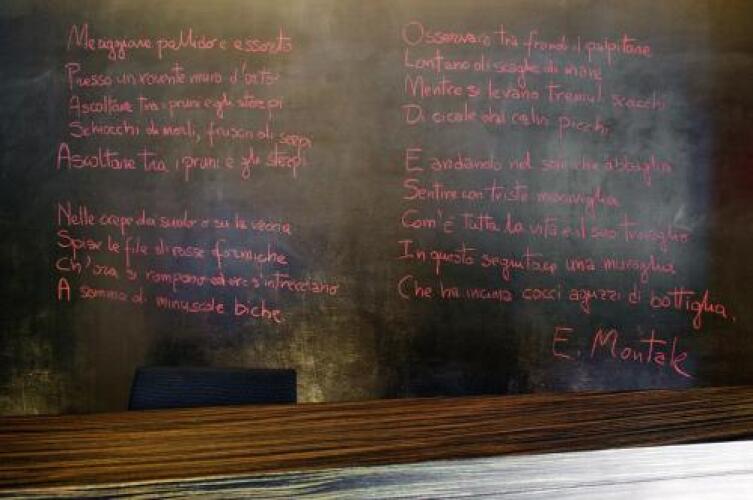 Meriggiare pallido e assorto
Presso un rovente muro d'orto
Ascoltare tra i pruni e gli sterpi
Schiocchi di merli, frusci di serpi
Ascoltare tra i pruni e gli sterpi
Nelle crepe dei suolo o su la veccia
Spiar le file di rosse formiche
Ch'ora si rompono ed ora s'intrecciano
A sommo di minuscole biche
Osservare tra frondi il palpitare
Lontano di scaglie di mare
Mentre si levano tremuli scricchi
Di cicale dai calvi picchi.
E andando nel sole che abbaglia
Sentire con triste meraviglia
Com'è tutta la vita e il suo travaglio
In questo seguitare una muraglia
Che ha in cima cocci aguzzi di bottiglia.
E. Montale